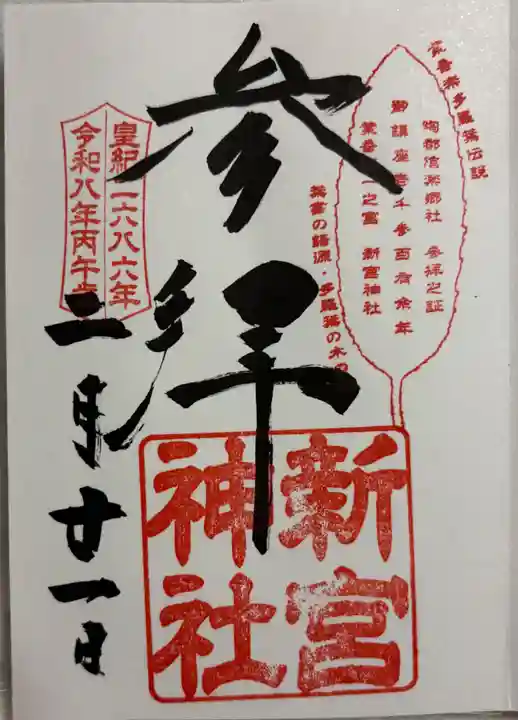 信楽多羅葉伝説
陶都信楽郷社 参拝之証
御鎮座壱千参百有余年
葉書の語源・多羅葉の木の
新宮神社
参拝
皇紀二六八六年
令和八年丙午歳
二月廿一日
新宮
神社